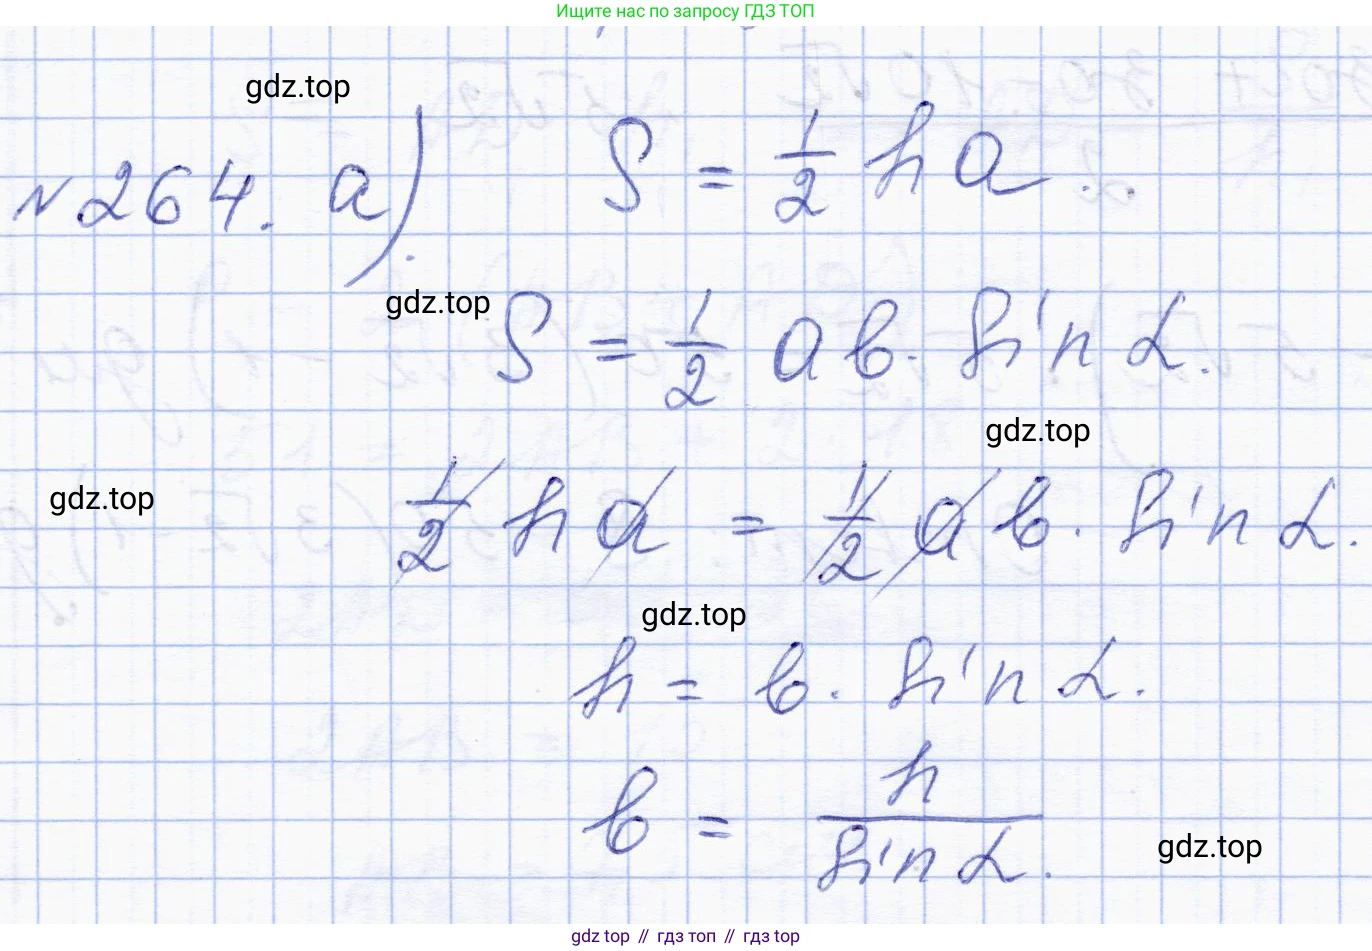 Ищите нас по запросу ГДЗ ТОП
gdz.top
№264. а). S = 1/2 ha.
gdz.top
S = 1/2 ab · sin α.
gdz.top
gdz.top
1/2 ha = 1/2 ab · sin α.
gdz.top
h = b · sin α.
b = h / sin α.
gdz.top
gdz top // гдз топ // гдз top